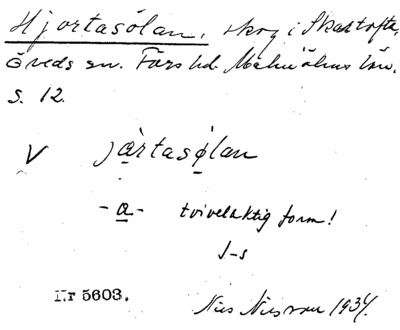 Hjortasölan, skog i Skartofta,
Öveds sn. Färs hd. Malmöhus län.
S. 12.
V jàrtasø̀lan
- a - tvivelaktig form!
J-s
Nr 5603. Nils Nilsson 1934.